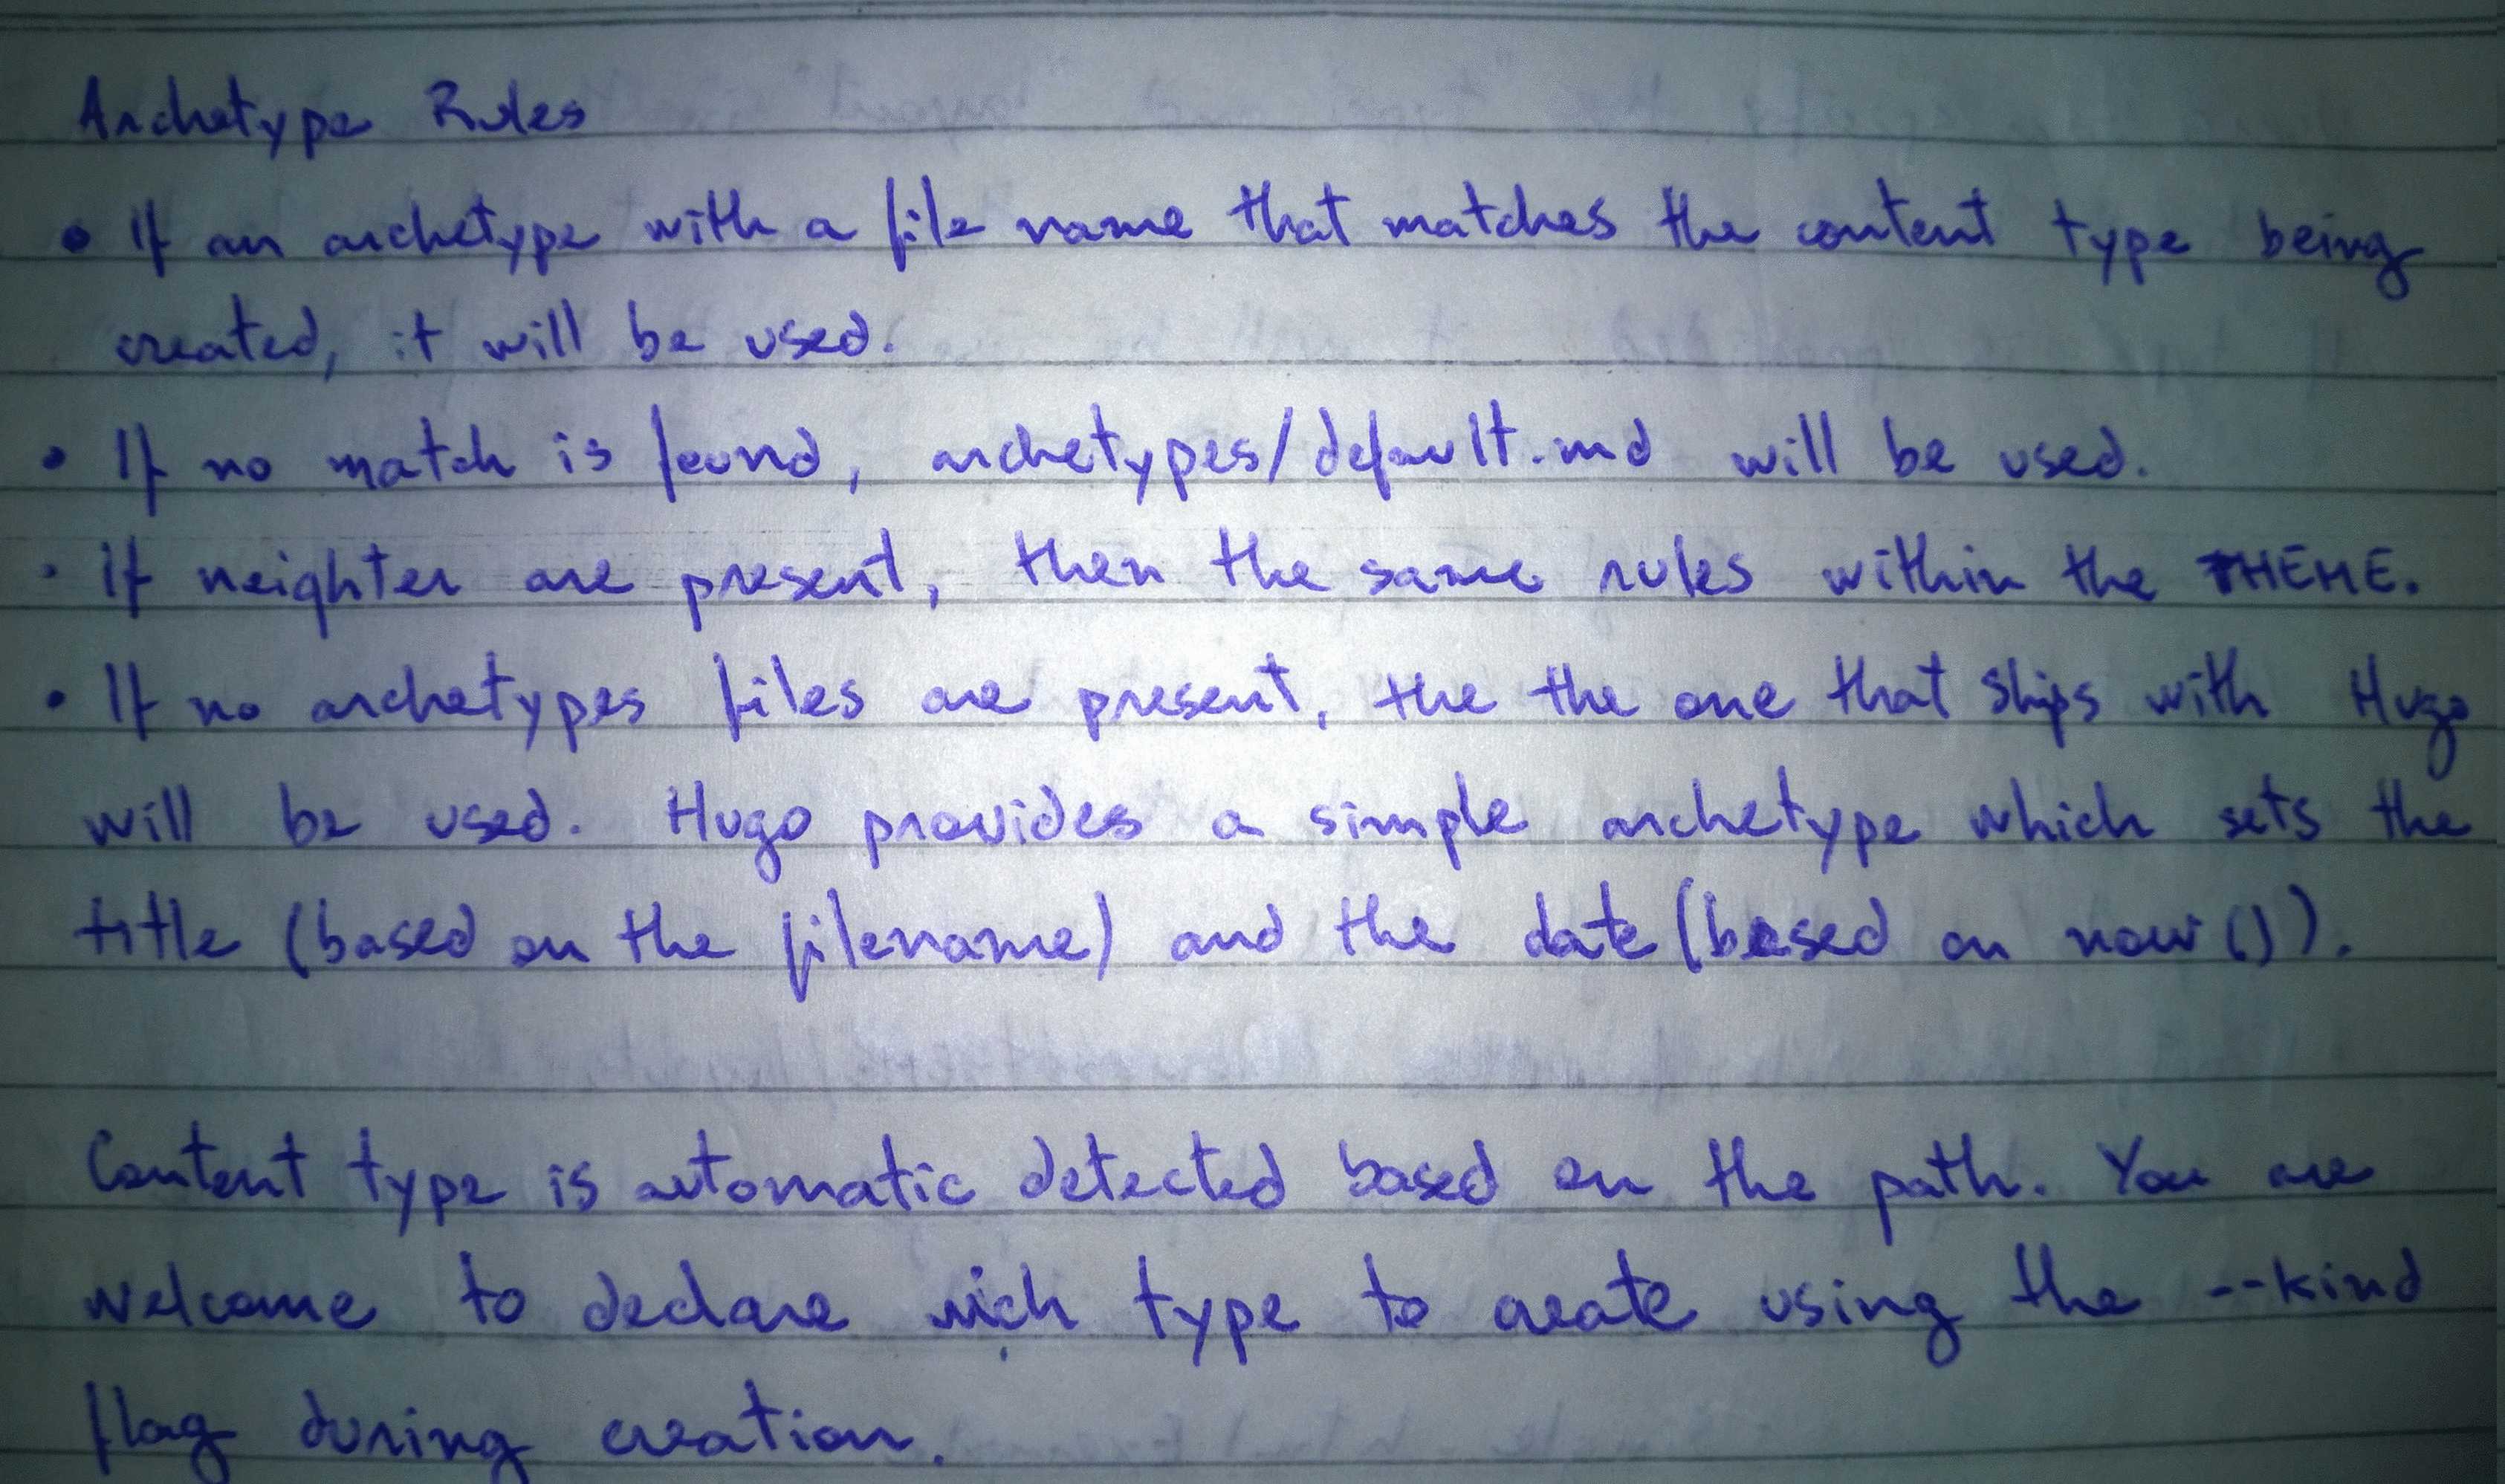 Archetype Rules
• If an archetype with a file name that matches the content type being
created, it will be used.
• If no match is found, archetypes/default.md will be used.
• If neighter are present, then the same rules within the THEME.
• If no archetypes files are present, the the one that ships with Hugo
will be used. Hugo provides a simple archetype which sets the
title (based on the filename) and the date (based on now()).
Content type is automatic detected based on the path. You are
welcome to declare wich type to create using the --kind
flag during creation.